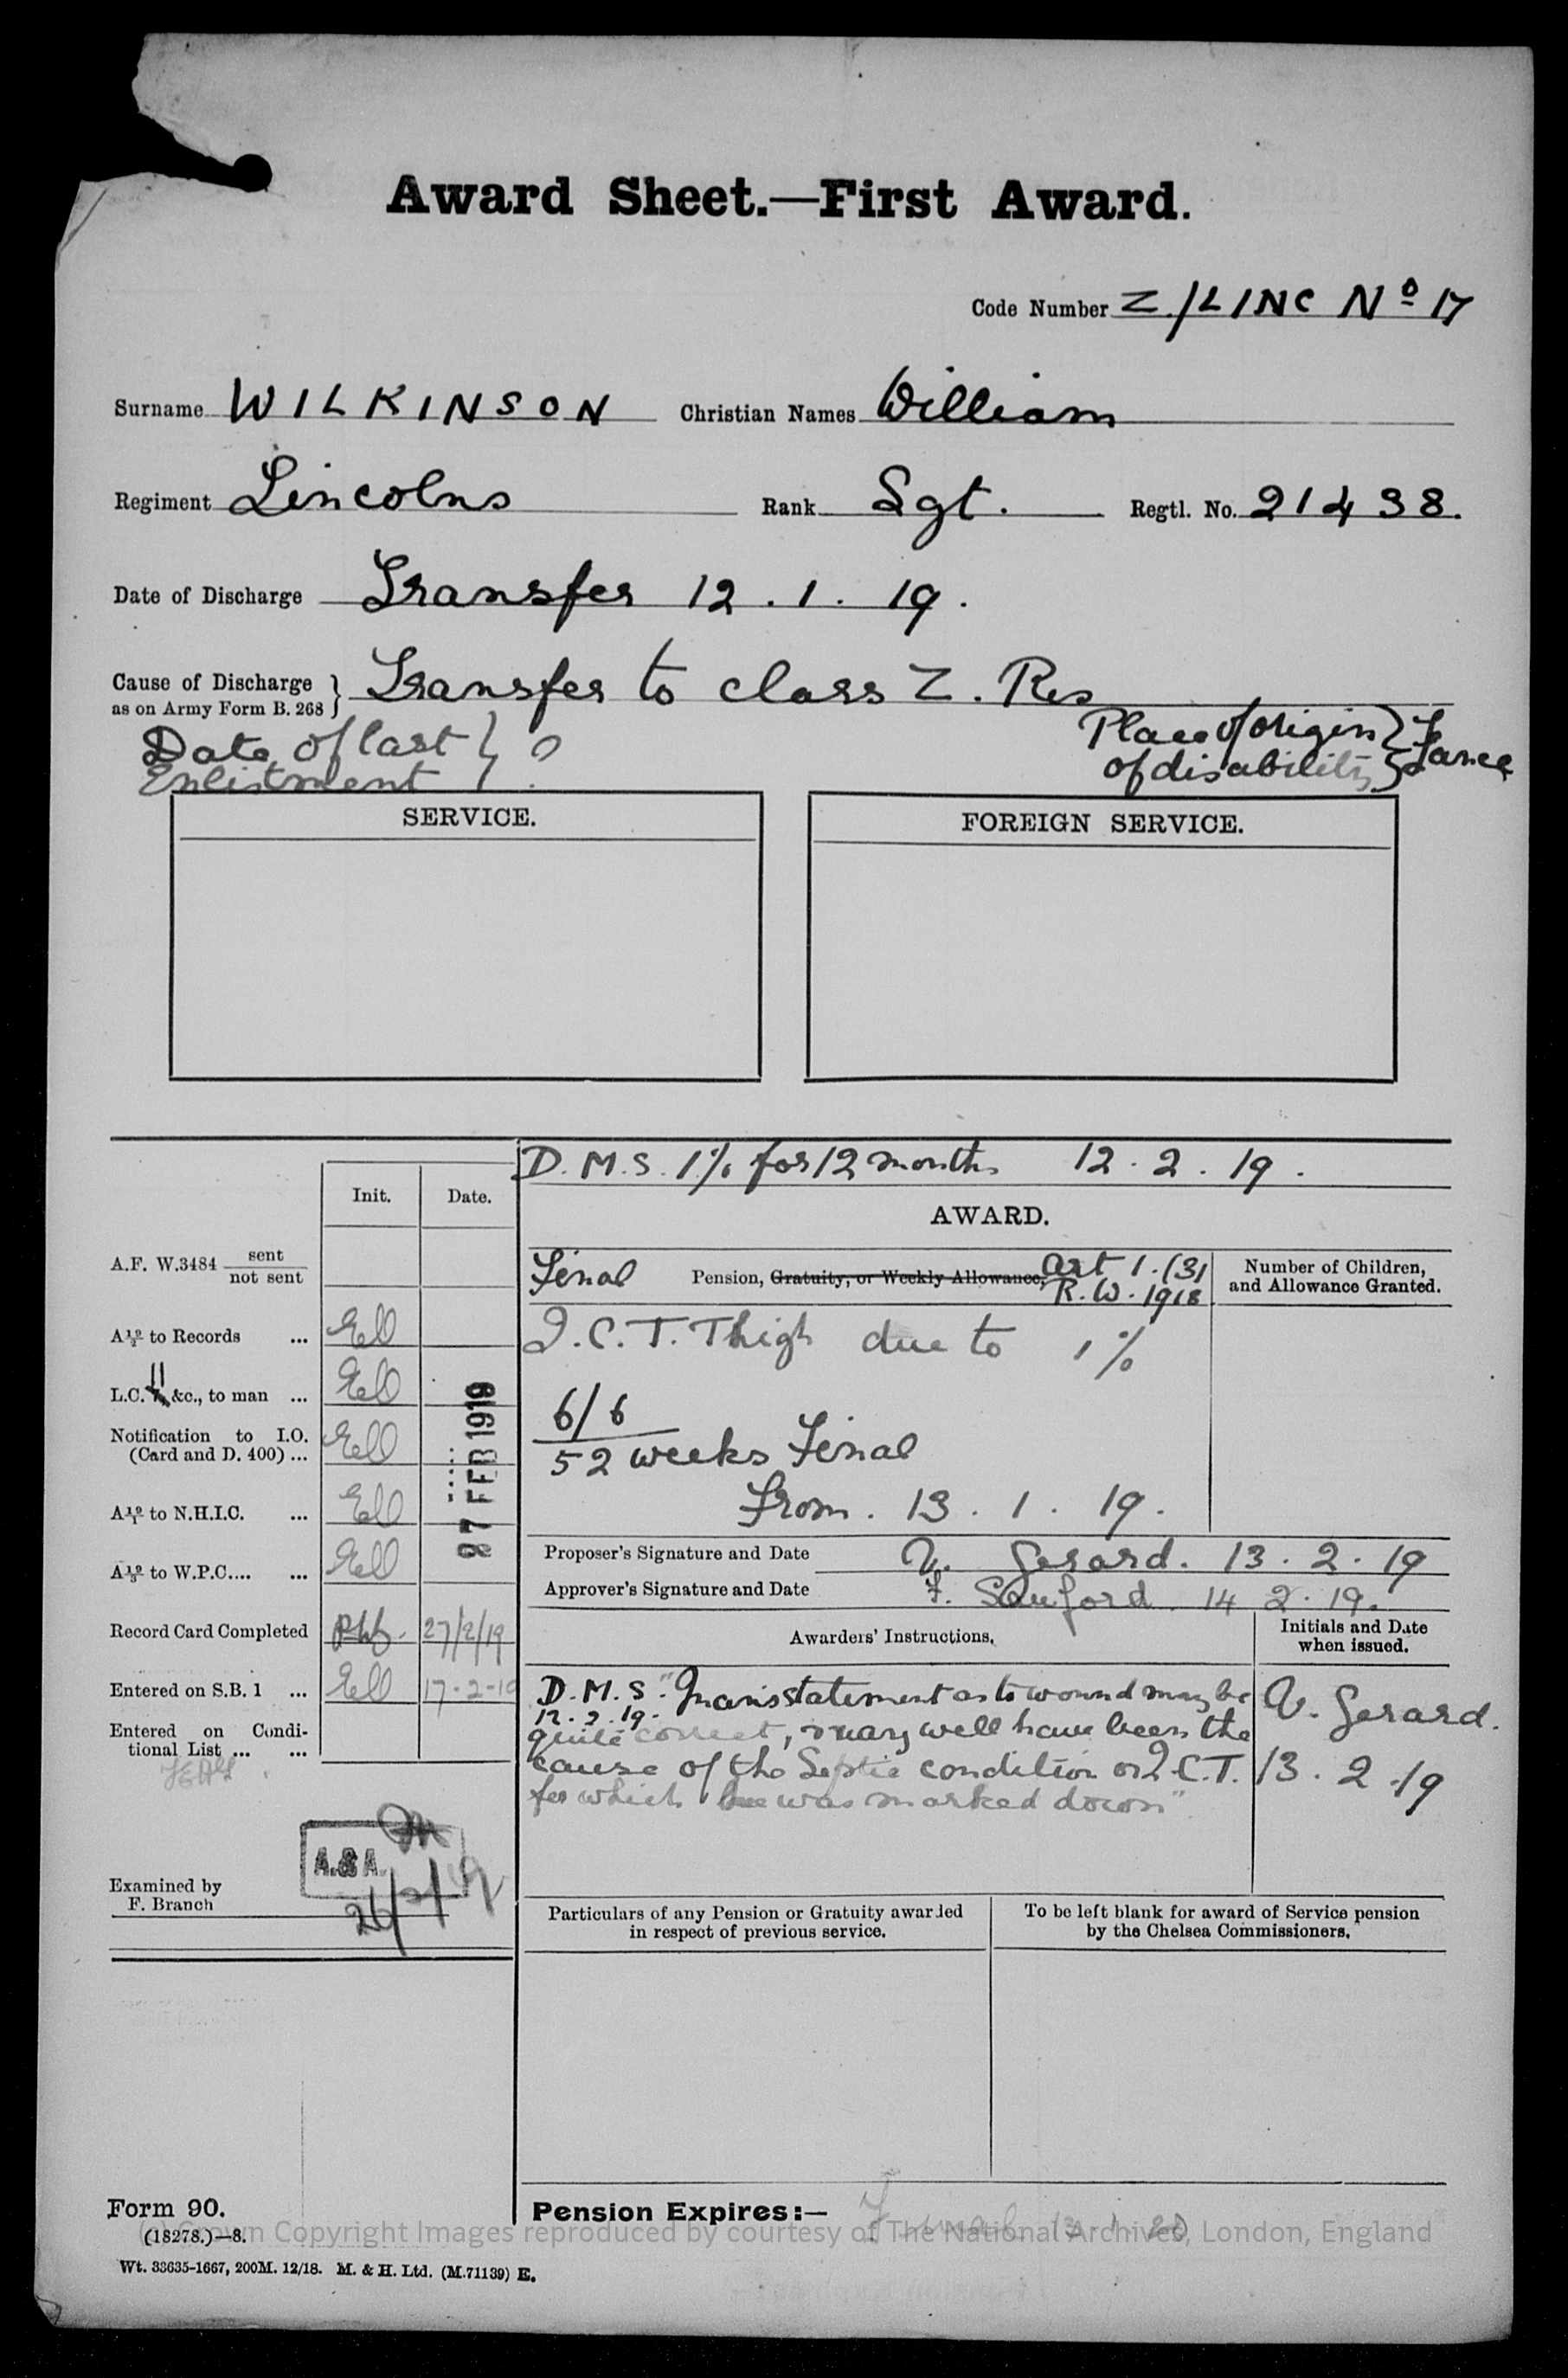 Award Sheet.—First Award.
Code Number Z/LINC Nº 17
Surname WILKINSON Christian Names William
Regiment Lincolns Rank Sgt. Regtl. No. 21438.
Date of Discharge Transfer 12.1.19.
Cause of Discharge as on Army Form B. 268 } Transfer to class Z. Res
Date of last Enlistment } ?
Place of origin of disability } France
SERVICE.
FOREIGN SERVICE.
D.M.S. 1% for 12 months 12.2.19.
Init. Date.
AWARD.
A.F. W.3484 sent
not sent
Final Pension, Gratuity, or Weekly Allowance, Art 1.(3)
R.W. 1918
Number of Children,
and Allowance Granted.
to Records ...
I.C.T. Thigh due to 1%
L.C. &c., to man ...
6/6
52 weeks Final
Notification to I.O.
(Card and D. 400) ...
27 FEB 1919
From. 13.1.19.
to N.H.I.C. ...
Proposer's Signature and Date V. Gerard. 13.2.19
to W.P.C.... ...
Approver's Signature and Date F. 14 2.19.
Record Card Completed 27/2/19
Awarders' Instructions.
Initials and Date
when issued.
Entered on S.B. 1 ... 17-2-19
D.M.S. "Man's statement as to wound may be
12.2.19.
quite correct, & may well have been the
cause of the Septic condition or I.C.T.
for which he was marked down"
V. Gerard.
13.2.19
Entered on Condi-
tional List ... ...
A.&A.
26/2/19
Examined by
F. Branch
Particulars of any Pension or Gratuity awarded
in respect of previous service.
To be left blank for award of Service pension
by the Chelsea Commissioners.
Form 90.
Pension Expires:— Final 13.1.20
(c) Crown Copyright Images reproduced by courtesy of The National Archives, London, England
(18278.)—8.
Wt. 33635-1667, 200M. 12/18. M. & H. Ltd. (M.71139) E.